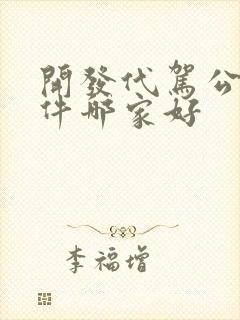 開發代駕公
件哪家好
李福增